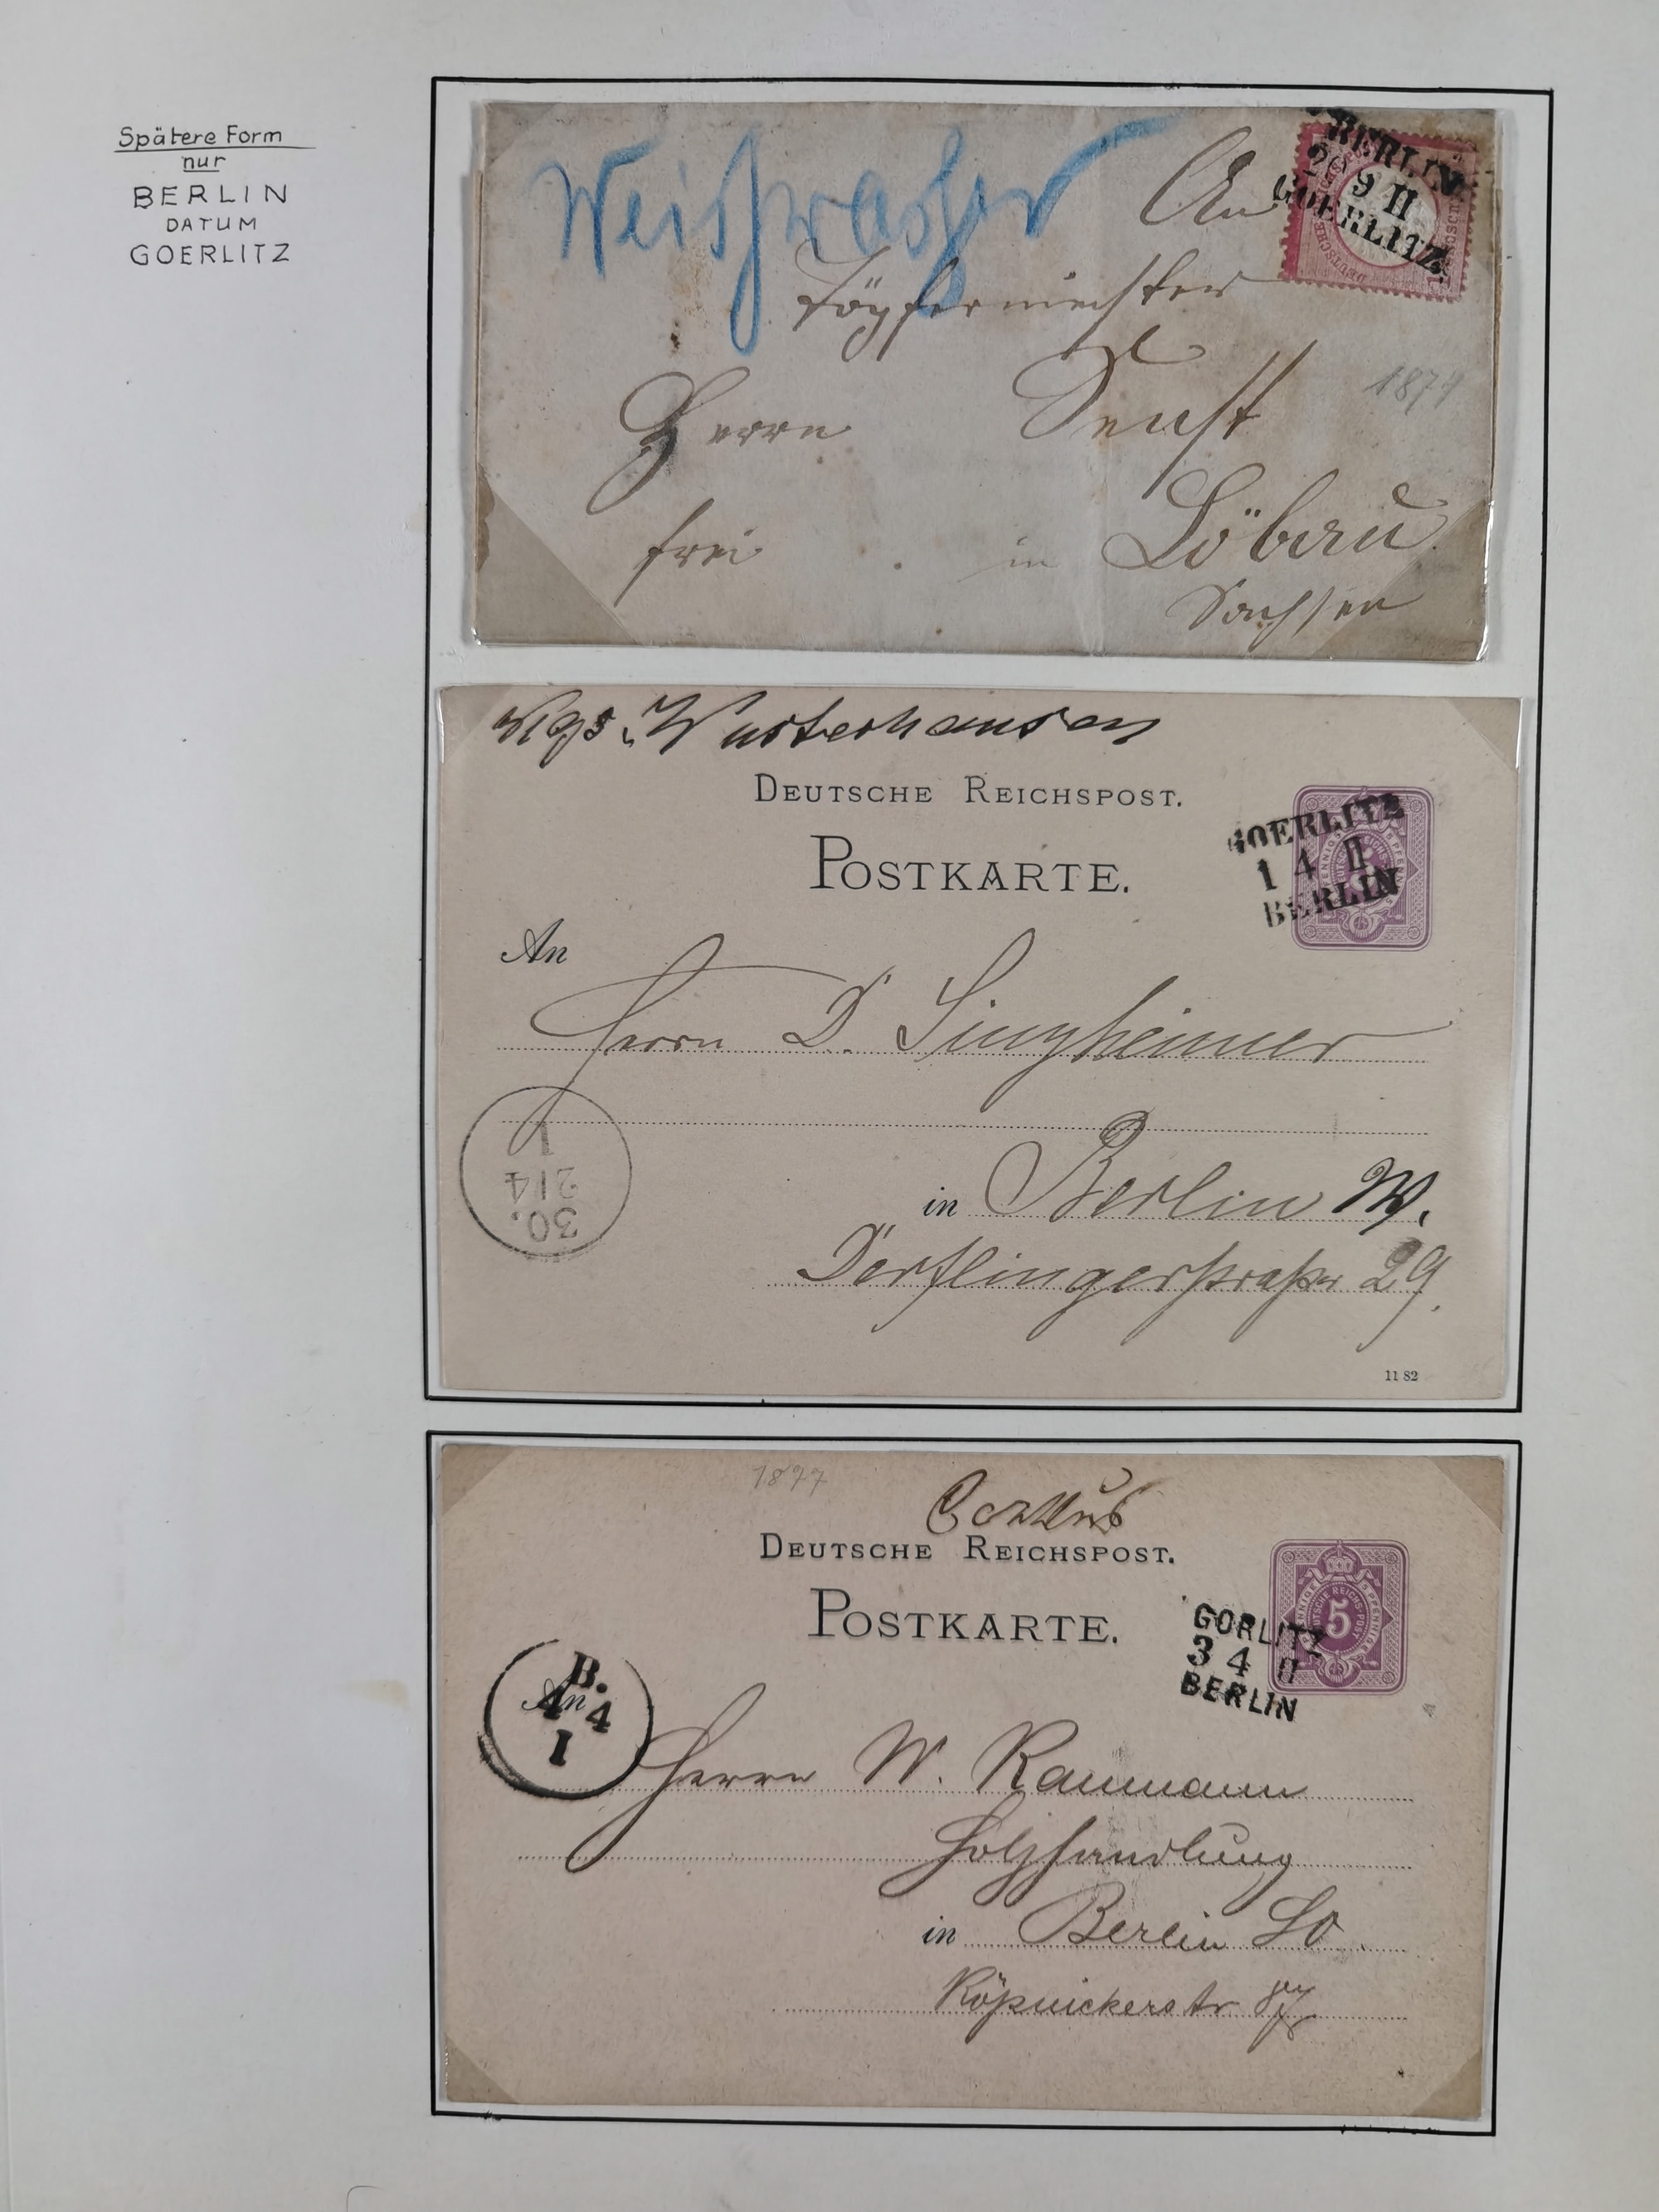 Spätere Form
nur
BERLIN
DATUM
GOERLITZ
Weißwasser
An
BERLIN
20 9 II
GOERLITZ
Töpfermeister
Herrn Senft
1874
frei in Löbau
Sachsen
Kgs. Wusterhausen
DEUTSCHE REICHSPOST.
POSTKARTE.
GOERLITZ
1 4 II
BERLIN
An
Herrn D. Singheimer
30.
2/4
1
in Berlin W.
Derfflingerstraße 29.
11 82
1877
Cottbus
DEUTSCHE REICHSPOST.
POSTKARTE.
5
GORLITZ
3 4 II
BERLIN
B.
An
4 4
I
Herrn W. Raumann
Holzhandlung
in Berlin SO
Köpnickerstr